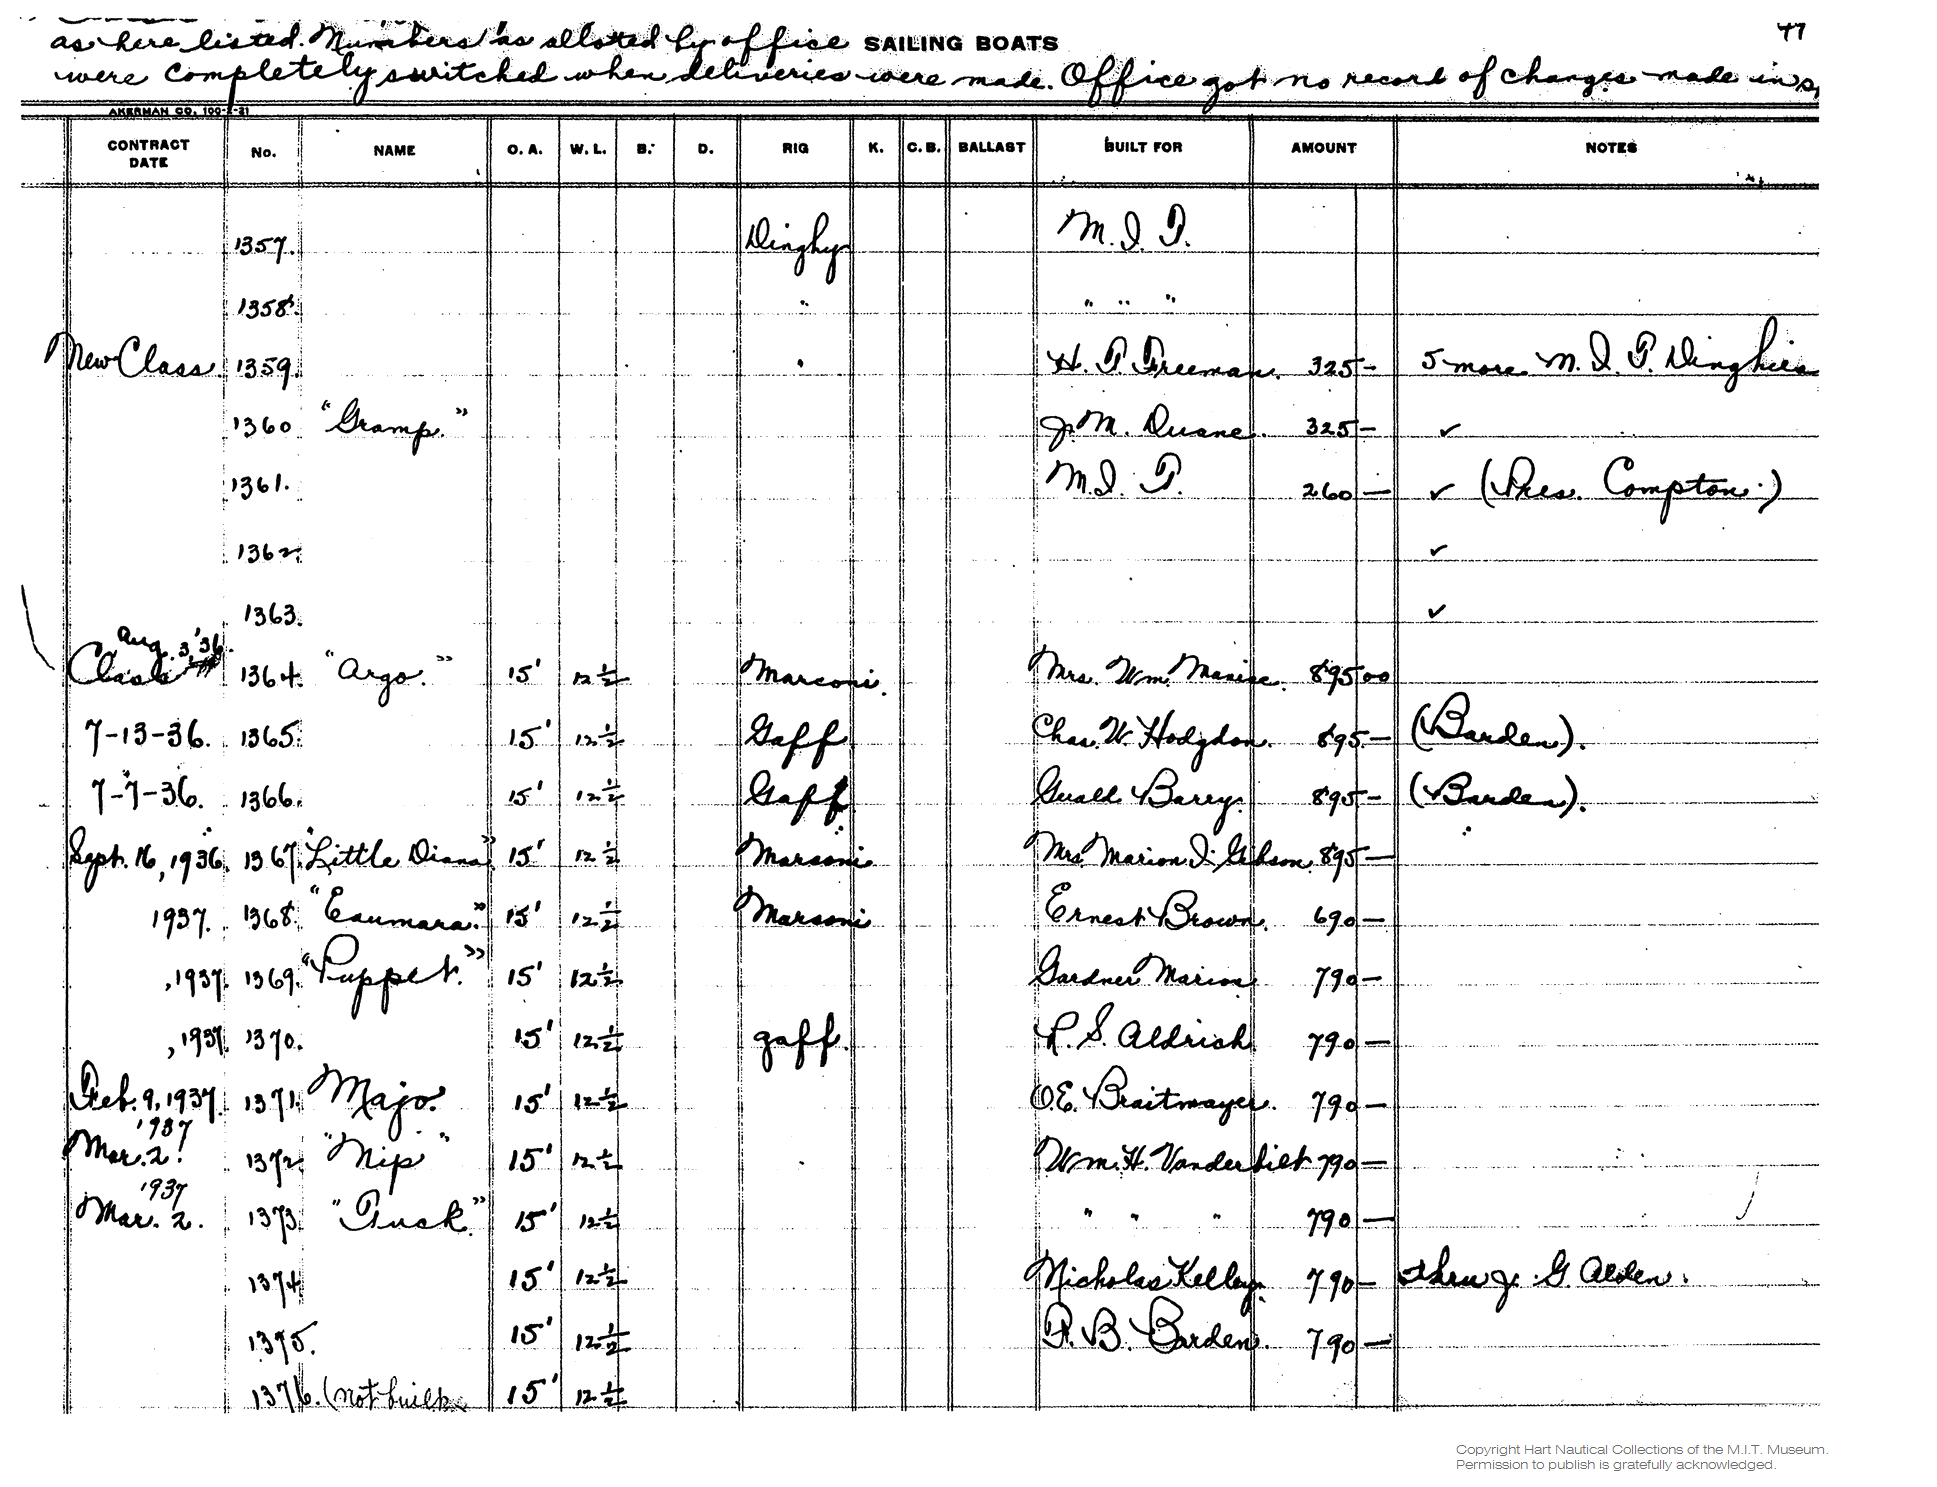 as here listed. Numbers as alloted by office SAILING BOATS 47
were completely switched when deliveries were made. Office got no record of changes made in
AKERMAN CO. 100-7-31
CONTRACT DATE No. NAME O. A. W. L. B. D. RIG K. C. B. BALLAST BUILT FOR AMOUNT NOTES
1357. Dinghy M. I. T.
1358. " " " "
New Class 1359. " H. T. Freeman. 325 - 5 more M. I. T. Dinghies
1360 "Gramp." J. M. Duane. 325 - ✓
1361. M. I. T. 260 — ✓ (Pres. Compton.)
1362. ✓
1363. ✓
Aug. 3, '36.
Class 1364. "Argo." 15' 12 ½ Marconi. Mrs. Wm. 895 00
7-13-36. 1365. 15' 12 ½ Gaff Chas. W. Hodgdon. 895 - (Barden).
7-7-36. 1366. 15' 12 ½ Gaff Barry. 895 - (Barden).
Sept. 16, 1936. 1367. "Little Diana" 15' 12 ½ Marconi Mrs. Marion J. Gibson. 895 —
1937. 1368. "Eaumara." 15' 12 ½ Marconi Ernest Brown. 690 —
, 1937. 1369. "Puppet." 15' 12 ½ Gardner 790 —
, 1937. 1370. 15' 12 ½ gaff. R. S. Aldrich 790 —
Feb. 9, 1937. 1371. Majo. 15' 12 ½ O. E. Braitmayer. 790 —
1937
Mar. 2. 1372 "Nip" 15' 12 ½ Wm. H. Vanderbilt 790 —
1937
Mar. 2. 1373. "Tuck." 15' 12 ½ " " " 790 —
1374 15' 12 ½ Nicholas Kelley. 790 - thru J. G. Alden.
1375. 15' 12 ½ P. B. Barden. 790 —
1376. (not built 15' 12 ½
Copyright Hart Nautical Collections of the M.I.T. Museum.
Permission to publish is gratefully acknowledged.